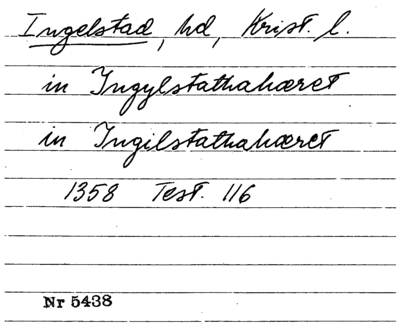 Ingelstad, hd, Krist. l.
in Ingylstathahæret
in Ingilstathahæret
1358 Test. 116
Nr 5438